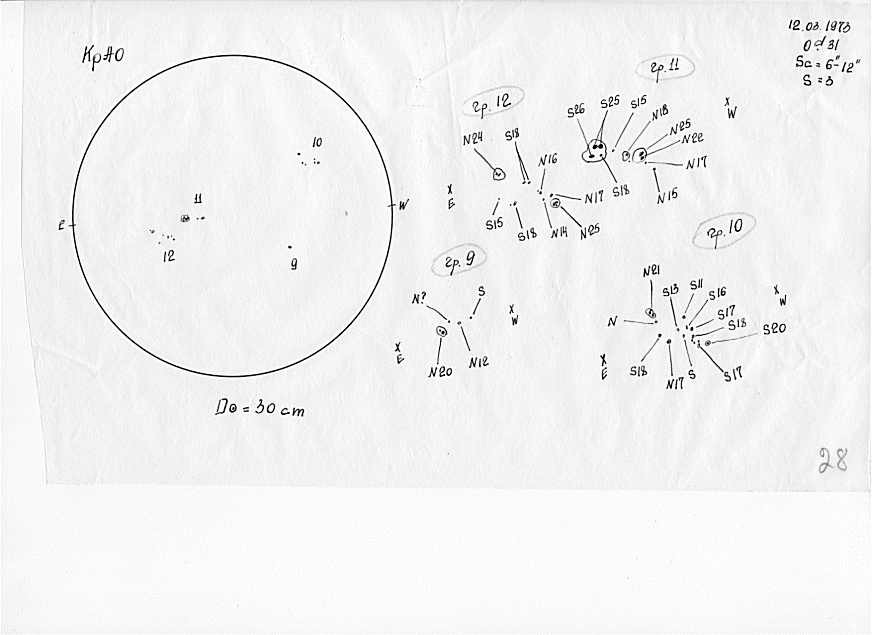 КрАО
12.03.1973
Sc = 6"-12"
S = 3
E
W
10
11
12
9
D⊙ = 30 cm
гр. 12
N24
S18
N16
N17
S15
S18
N14
N25
X
E
гр. 11
S26
S25
S15
N18
N25
N22
N17
S18
N15
X
W
гр. 9
N?
S
N20
N12
X
E
X
W
гр. 10
N21
S13
S11
S16
S17
S18
S20
N
S18
N17
S
S17
X
E
X
W
28